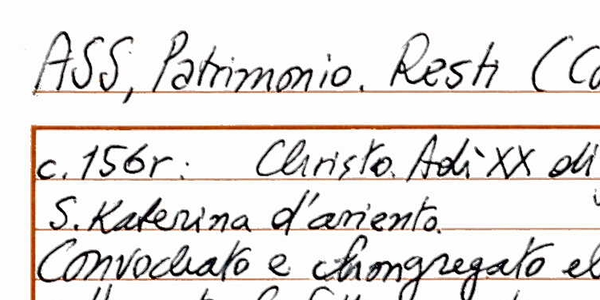 ASS, Patrimonio. Resti (Co
c. 156r: Christo. Adì XX di
S. Katerina d'ariento.
Convochato e chongregato el